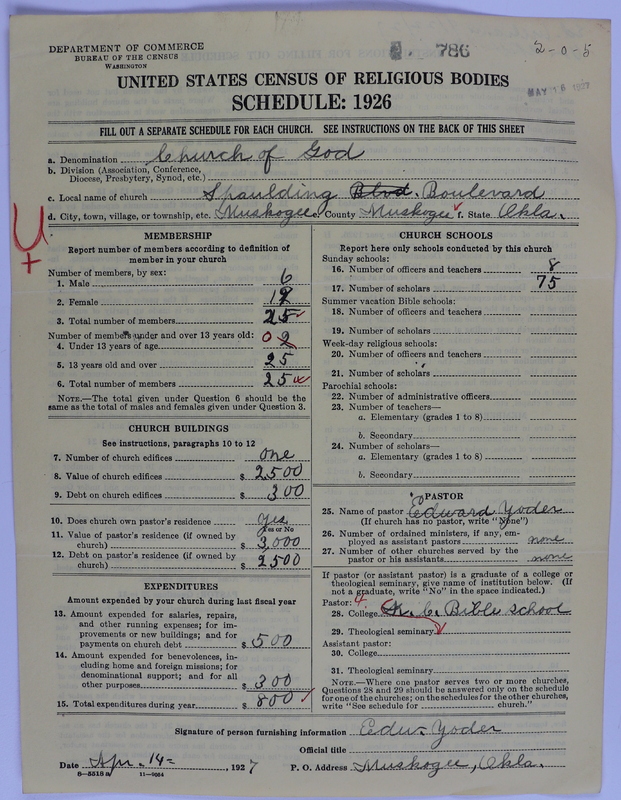 786
2-0-5
DEPARTMENT OF COMMERCE
BUREAU OF THE CENSUS
WASHINGTON
MAY 16 1927
UNITED STATES CENSUS OF RELIGIOUS BODIES
SCHEDULE: 1926
FILL OUT A SEPARATE SCHEDULE FOR EACH CHURCH. SEE INSTRUCTIONS ON THE BACK OF THIS SHEET
a. Denomination Church of God
b. Division (Association, Conference,
Diocese, Presbytery, Synod, etc.)
c. Local name of church Spaulding Blvd. Boulevard
d. City, town, village, or township, etc. Muskogee County Muskogee f. State Okla.
MEMBERSHIP
Report number of members according to definition of
member in your church
Number of members, by sex:
1. Male 6
2. Female
3. Total number of members 25
Number of members under and over 13 years old:
4. Under 13 years of age 0
5. 13 years old and over 25
6. Total number of members 25
NOTE.—The total given under Question 6 should be
the same as the total of males and females given under Question 3.
CHURCH BUILDINGS
See instructions, paragraphs 10 to 12
7. Number of church edifices one
8. Value of church edifices $ 2500
9. Debt on church edifices $ 300
10. Does church own pastor's residence yes
Yes or No
11. Value of pastor's residence (if owned by
church) $ 3,000
12. Debt on pastor's residence (if owned by
church) $ 2500
EXPENDITURES
Amount expended by your church during last fiscal year
13. Amount expended for salaries, repairs,
and other running expenses; for im-
provements or new buildings; and for
payments on church debt $ 500
14. Amount expended for benevolences, in-
cluding home and foreign missions; for
denominational support; and for all
other purposes $ 300
15. Total expenditures during year $ 800
CHURCH SCHOOLS
Report here only schools conducted by this church
Sunday schools:
16. Number of officers and teachers 8
17. Number of scholars 75
Summer vacation Bible schools:
18. Number of officers and teachers
19. Number of scholars
Week-day religious schools:
20. Number of officers and teachers
21. Number of scholars
Parochial schools:
22. Number of administrative officers
23. Number of teachers—
a. Elementary (grades 1 to 8)
b. Secondary
24. Number of scholars—
a. Elementary (grades 1 to 8)
b. Secondary
PASTOR
25. Name of pastor Edward Yoder
(If church has no pastor, write "None")
26. Number of ordained ministers, if any, em-
ployed as assistant pastors none
27. Number of other churches served by the
pastor or his assistants none
If pastor (or assistant pastor) is a graduate of a college or
theological seminary, give name of institution below. (If
not a graduate, write "No" in the space indicated.)
Pastor: 4
28. College K. C. Bible School
29. Theological seminary
Assistant pastor:
30. College
31. Theological seminary
NOTE.—Where one pastor serves two or more churches,
Questions 28 and 29 should be answered only on the schedule
for one of the churches; on the schedules for the other churches,
write "See schedule for church."
Signature of person furnishing information Edw. Yoder
Official title
Date Apr. 14- , 1927 P. O. Address Muskogee, Okla.
8-5518 a 11-9064